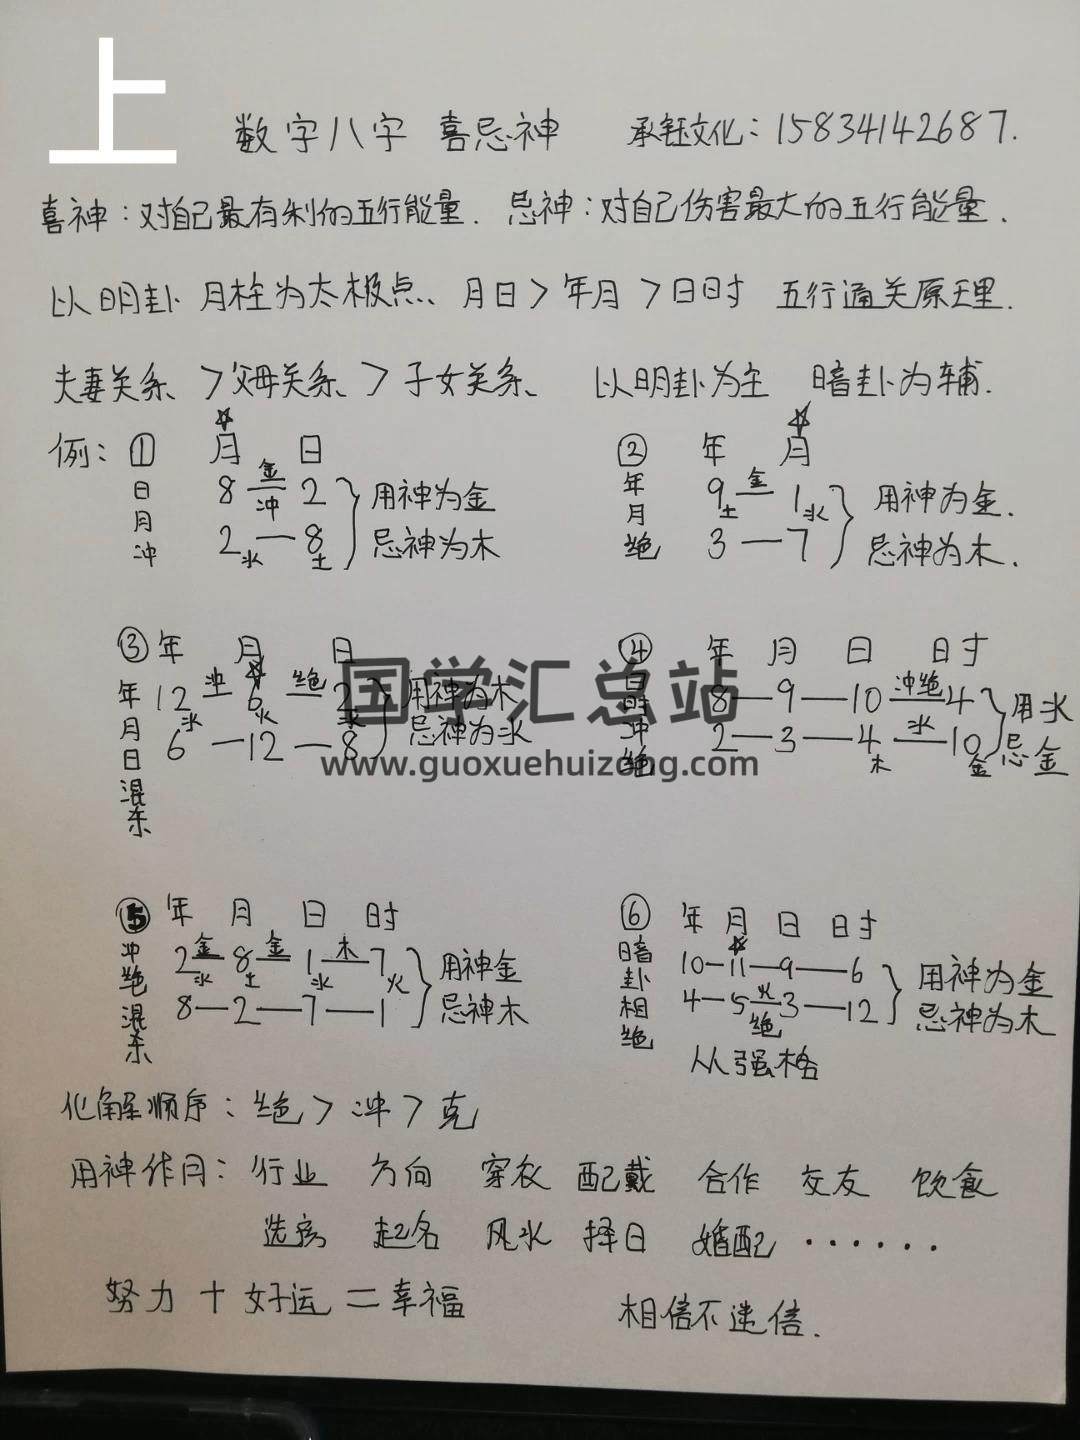 上
数字八字 喜忌神 承钰文化：15834142687.
喜神：对自己最有利的五行能量. 忌神：对自己伤害最大的五行能量.
以明卦 月柱为太极点、月日>年月>日时 五行通关原理.
夫妻关系 >父母关系 >子女关系、 以明卦为主 暗卦为辅.
例：① 月 日
日月冲
8 金 冲 2 用神为金
2水—8土 忌神为木
② 年 月
年月绝
9土 金 1水 用神为金.
3—7 忌神为木.
③ 年 月 日
年月日混杂
12水 冲 6火 绝 2水 用神为木
6—12—8 忌神为水
④ 年 月 日 时
日时冲绝
8—9—10 冲绝 4 用水
2—3—4木 水 10金 忌金
⑤ 年 月 日 时
冲绝混杂
2水 金 8土 金 1水 木 7火 用神金
8—2—7—1 忌神木
⑥ 年 月 日 时
暗卦相绝
10—11—9—6 用神为金
4—5 火 绝 3—12 忌神为木
从强格
化解顺序：绝>冲>克
用神作用：行业 方向 穿衣 配戴 合作 交友 饮食
选房 起名 风水 择日 婚配······
努力+好运=幸福
相信不迷信.
国学汇总站
www.guoxuehuizong.com